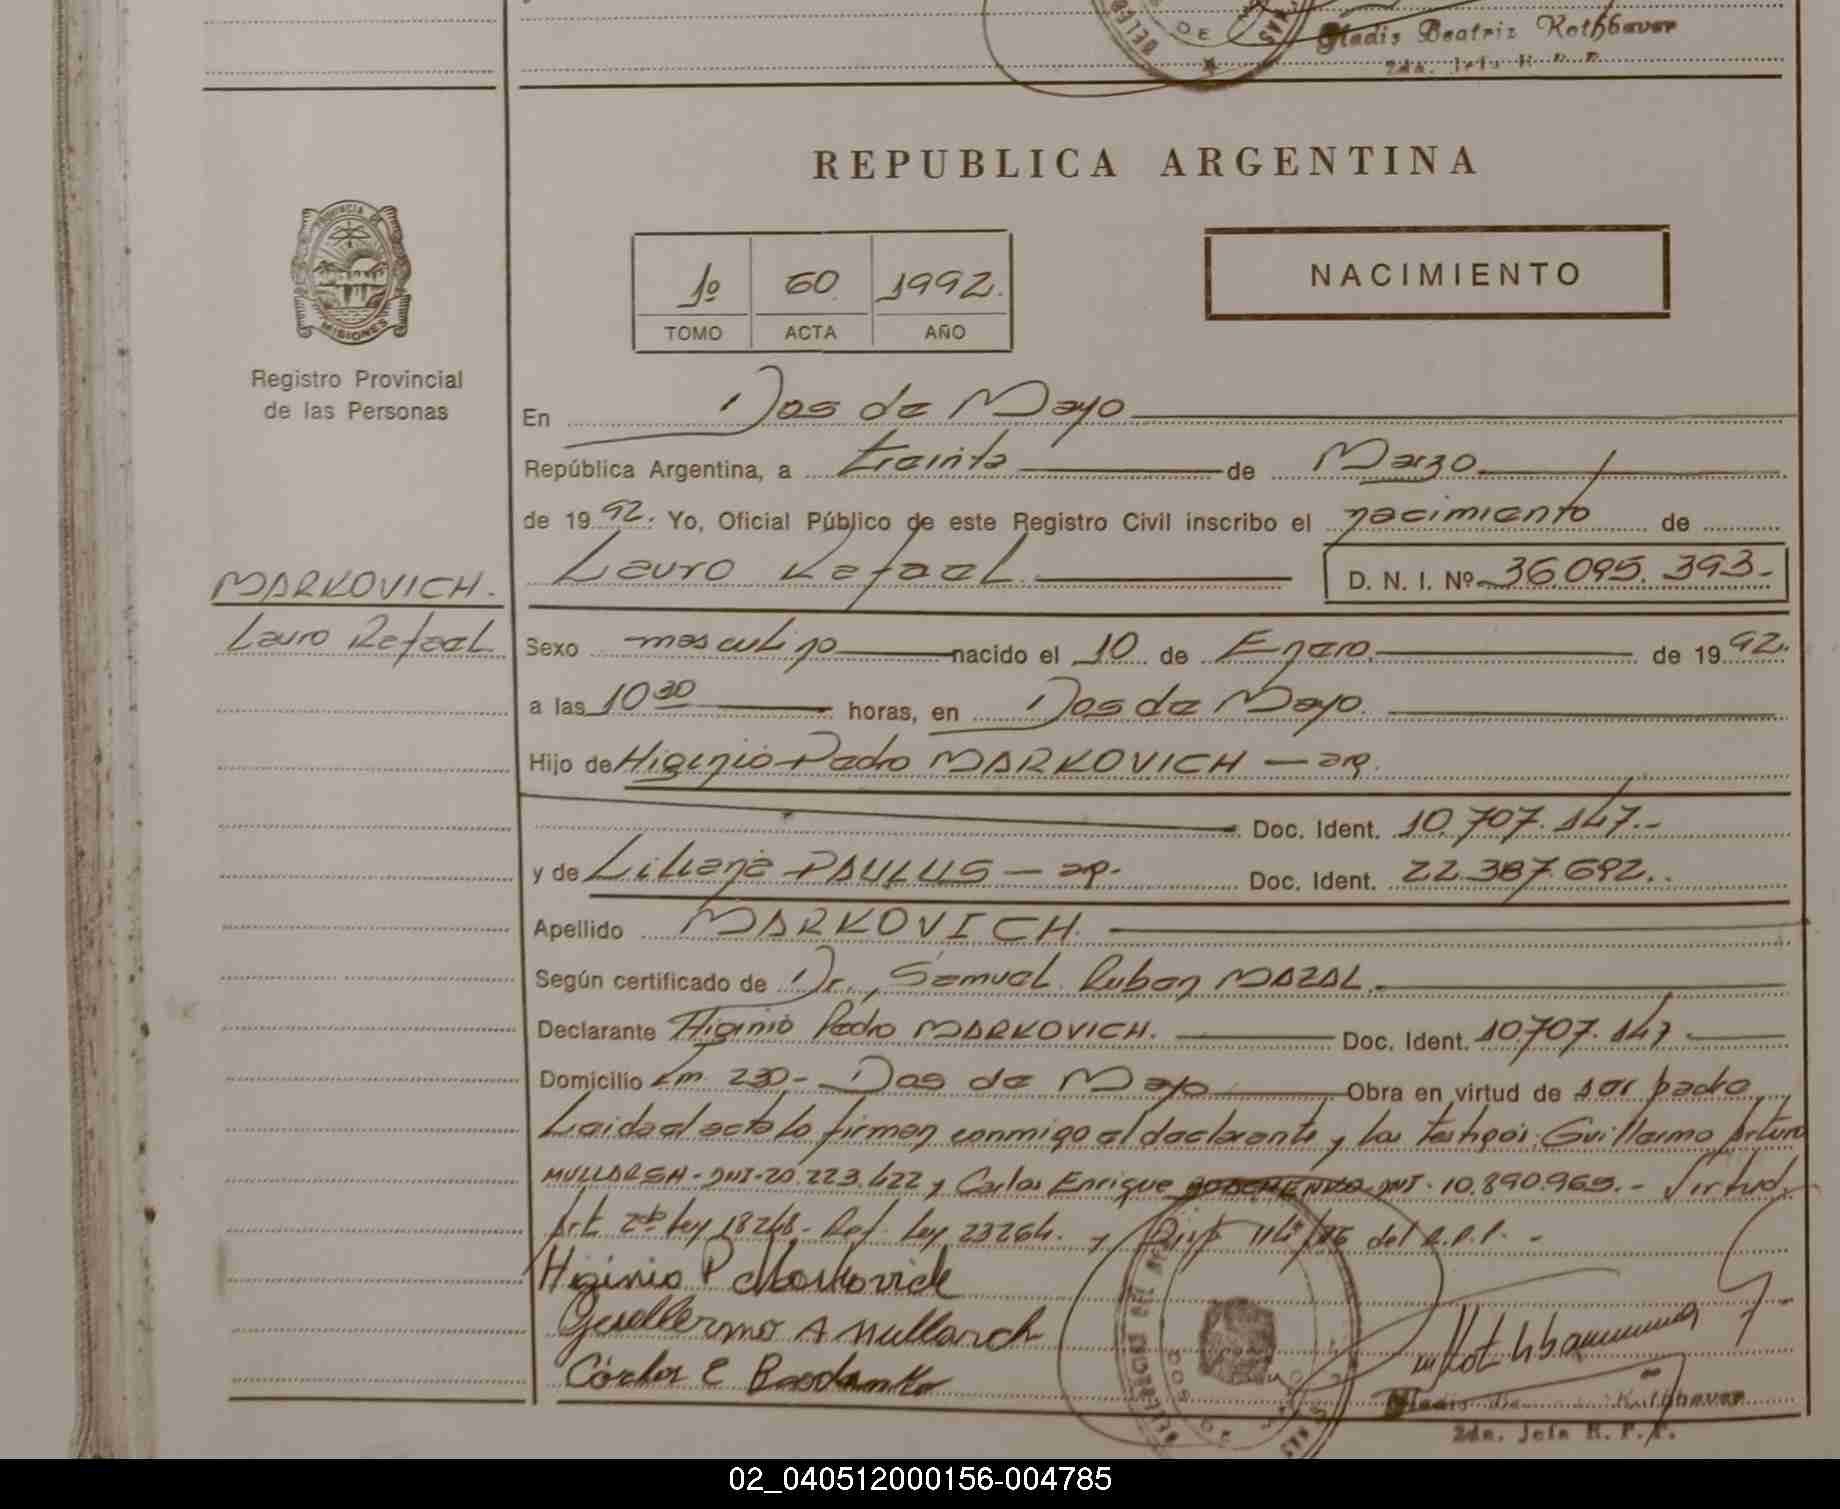 Gladis Beatriz Rothbauer
2da. Jefe R. P. P.
REPUBLICA ARGENTINA
PROVINCIA DE
MISIONES
Registro Provincial
de las Personas
1º 60 1992.
TOMO ACTA AÑO
NACIMIENTO
En Dos de Mayo
República Argentina, a treinta de Marzo
de 1992. Yo, Oficial Público de este Registro Civil inscribo el nacimiento de
Lauro Rafael. D. N. I. Nº 36.095.393.-
MARKOVICH.
Lauro Rafael
Sexo masculino nacido el 10 de Enero. de 1992.
a las 10 30 horas, en Dos de Mayo.
Hijo de Higinio Pedro MARKOVICH — arg.
Doc. Ident. 10.707.147.-
y de Liliana PAULUS — arg.- Doc. Ident. 22.387.692..
Apellido MARKOVICH.
Según certificado de Dr. Samuel Ruben MAZAL.
Declarante Higinio Pedro MARKOVICH. Doc. Ident. 10.707.147
Domicilio Km. 230- Dos de Mayo Obra en virtud de ser padre
Leida el acta lo firman conmigo el declarante y los testigos: Guillermo Arturo
MULLARCH-DNI-20.223.422 y Carlos Enrique DNI. 10.890.965.- Virtud
Art. 2do Ley 18248- Ref. Ley 23264. y Disp 114/86 del R.P.P. -
Higinio P Markovich
Guillermo A Mullarch
Carlos E
Gladis Rothbauer
2da. Jefe R. P. P.
02_040512000156-004785